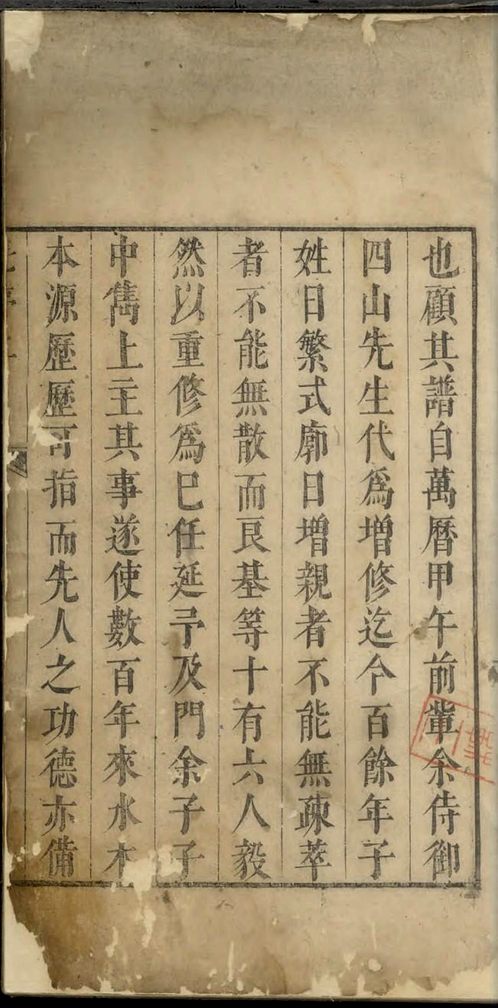 也顧其譜自萬曆甲午前輩余侍御
四山先生代爲增修迄今百餘年子
姓日繁式廓日增親者不能無疎萃
者不能無散而良基等十有六人毅
然以重修爲巳任延予及門余子子
中雋上主其事遂使數百年來水木
本源歷歷可指而先人之功德亦備